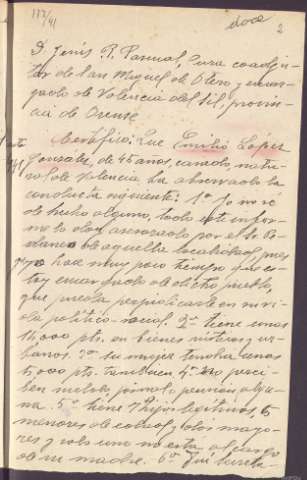 117/41
doce
2
D. Jenis P. Pascual, Cura coadju-
tor de San Miguel de Otero y encar-
gado de Valencia del Sil, provin-
cia de Orense
Certifico: Que Emilio López
Gonzalez, de 45 años, casado, natu-
ral de Valencia ha observado la
conducta siguiente: 1º Yo no se
de hecho alguno, todo este infor-
me lo doy asesorado por el Sr Pe-
daneo de aquella localidad, pues
hace muy poco tiempo que es-
toy encargado de dicho pueblo,
que pueda perjudicarle en su vi-
da político-social. 2º tiene unos
14,000 pts. en bienes rusticos y ur-
banos. 3º su mujer tendra unas
5,000 pts. tambien 4º no perci-
ben sueldo, jornal o pensión algu-
na. 5º tiene 7 hijos legitimos, 5
menores de edad y dos mayo-
res y solo uno no está al cargo
de su madre. 6º Fué